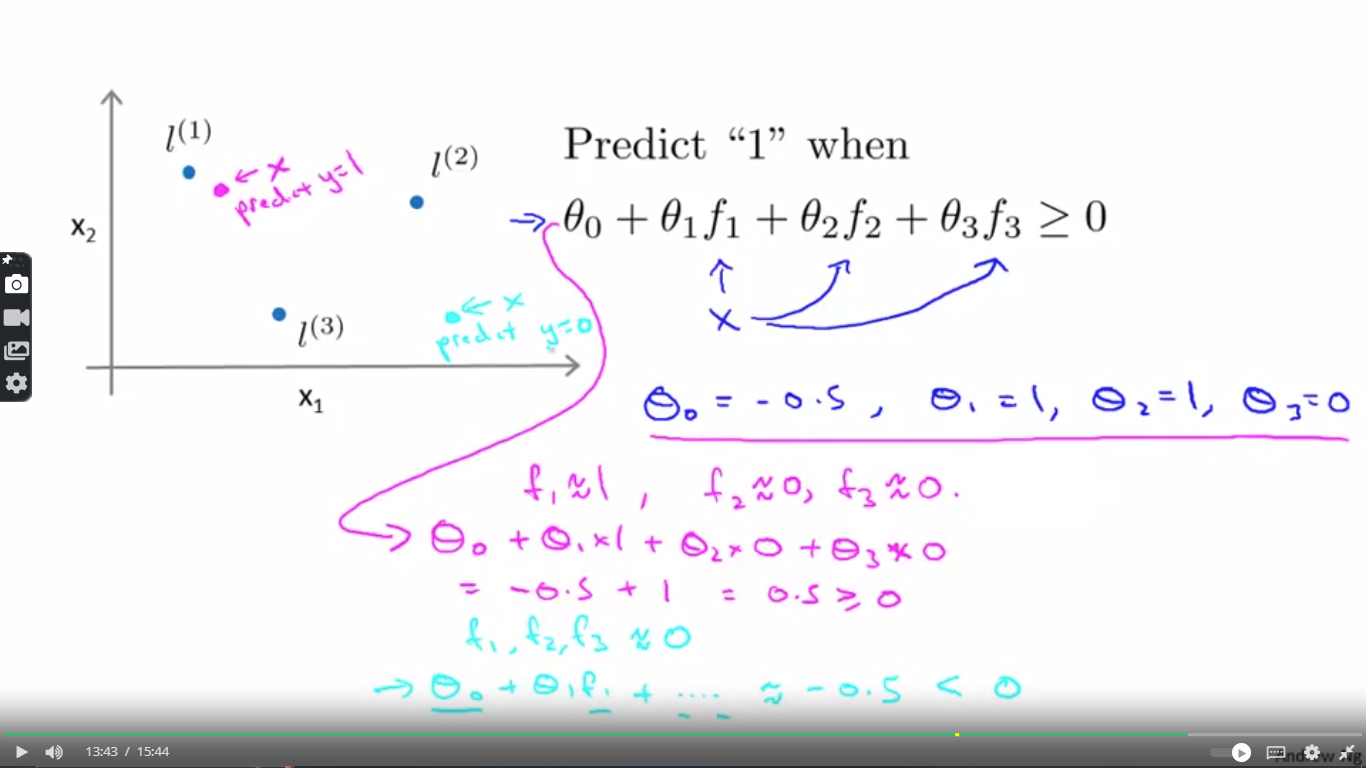 l^{(1)}
← x
predict y=1
l^{(2)}
x₂
l^{(3)}
← x
predict y=0
x₁
Predict “1” when
→ θ₀ + θ₁f₁ + θ₂f₂ + θ₃f₃ ≥ 0
x
θ₀ = -0.5, θ₁ = 1, θ₂ = 1, θ₃ = 0
f₁ ≈ 1, f₂ ≈ 0, f₃ ≈ 0.
θ₀ + θ₁×1 + θ₂×0 + θ₃×0
= -0.5 + 1 = 0.5 ≥ 0
f₁, f₂, f₃ ≈ 0
→ θ₀ + θ₁f₁ + .... ≈ -0.5 < 0
13:43 / 15:44
Andrew Ng